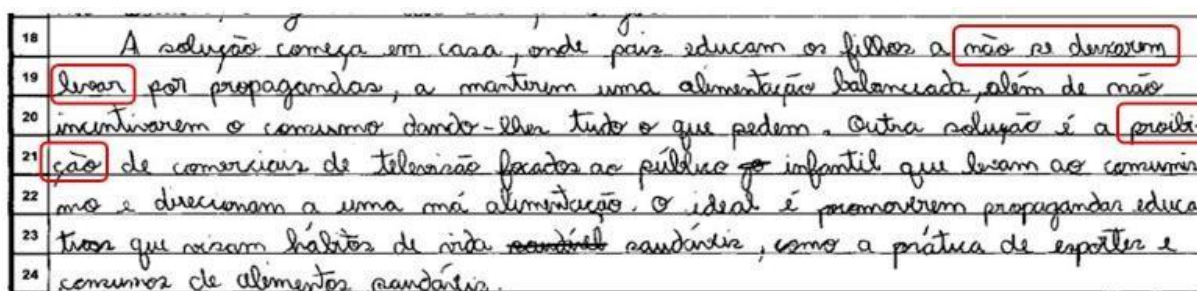 18 A solução começa em casa, onde pais educam os filhos a não se deixarem
19 levar por propagandas, a manterem uma alimentação balanceada, além de não
20 incentivarem o consumo dando-lhes tudo o que pedem. Outra solução é a proibi-
21 ção de comerciais de televisão focados ao público infantil que levam ao consumis
22 mo e direcionam a uma má alimentação. O ideal é promoverem propagandas educa
23 tivas que visam hábitos de vida saudáveis, como a prática de esportes e
24 consumos de alimentos saudáveis.